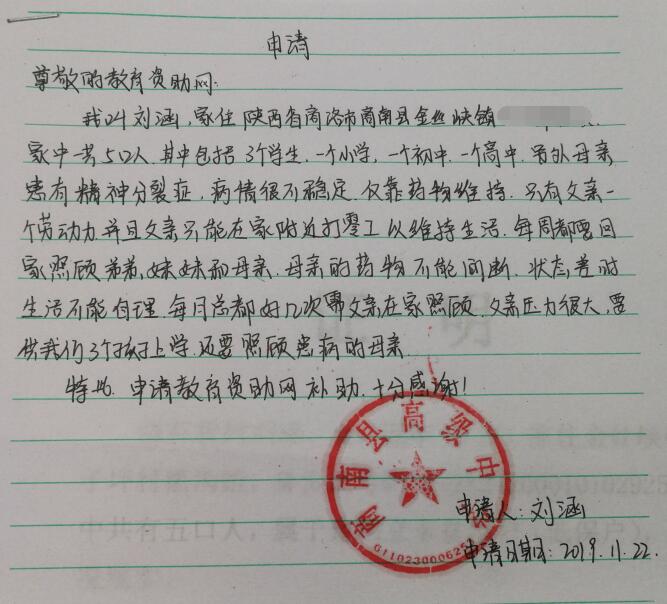 申请
尊敬的教育资助网
我叫刘涵,家住陕西省商洛市商南县金丝峡镇
家中共5口人,其中包括3个学生.一个小学,一个初中.一个高中.另外母亲
患有精神分裂症,病情很不稳定.仅靠药物维持.只有父亲一
个劳动力.并且父亲只能在家附近打零工以维持生活.每周都要回
家照顾弟弟,妹妹和母亲.母亲的药物不能间断.状态差时
生活不能自理.每月总都好几次需父亲在家照顾.父亲压力很大,要
供我们3个孩子上学.还要照顾患病的母亲
特此.申请教育资助网补助.十分感谢!
商南县高级中学
申请人:刘涵
申请日期:2019.11.22.